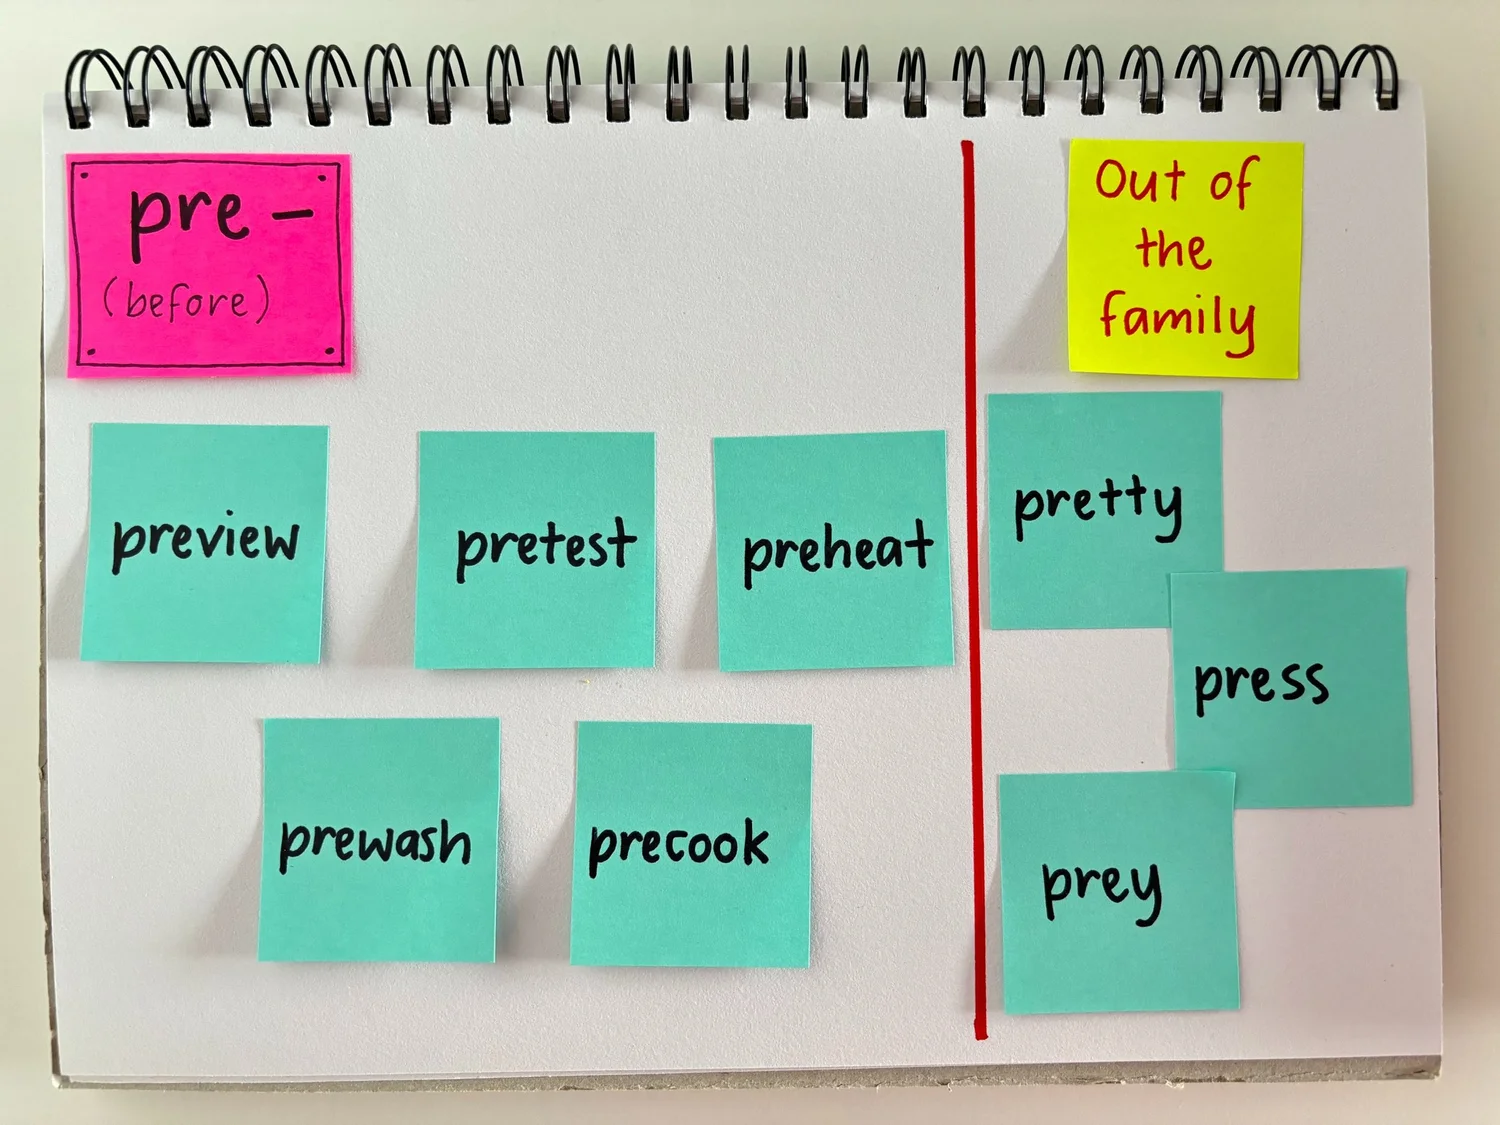 pre-
(before)
Out of
the
family
preview
pretest
preheat
prewash
precook
pretty
press
prey